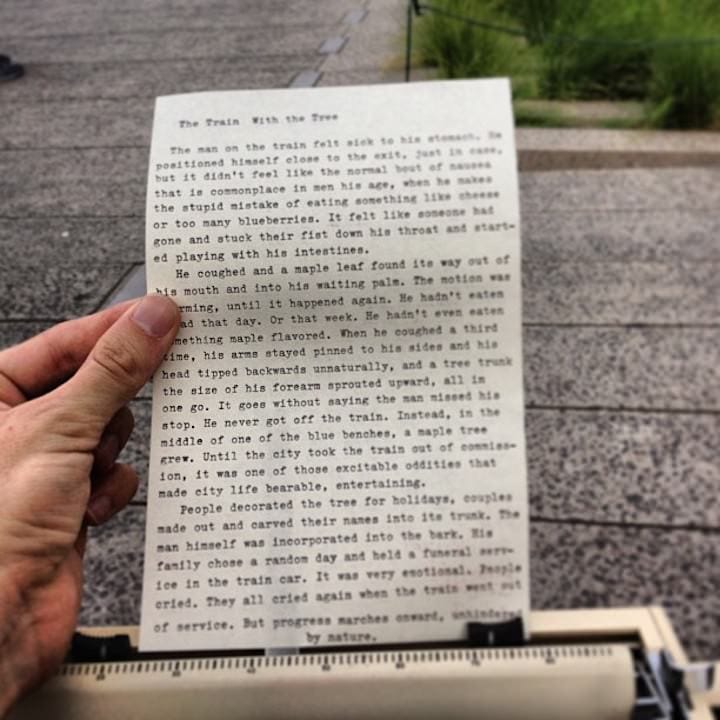 The Train With the Tree
The man on the train felt sick to his stomach. He
positioned himself close to the exit, just in case,
but it didn't feel like the normal bout of nausea
that is commonplace in men his age, when he makes
the stupid mistake of eating something like cheese
or too many blueberries. It felt like someone had
gone and stuck their fist down his throat and start-
ed playing with his intestines.
He coughed and a maple leaf found its way out of
his mouth and into his waiting palm. The motion was
rming, until it happened again. He hadn't eaten
ad that day. Or that week. He hadn't even eaten
mething maple flavored. When he coughed a third
time, his arms stayed pinned to his sides and his
head tipped backwards unnaturally, and a tree trunk
the size of his forearm sprouted upward, all in
one go. It goes without saying the man missed his
stop. He never got off the train. Instead, in the
middle of one of the blue benches, a maple tree
grew. Until the city took the train out of commiss-
ion, it was one of those excitable oddities that
made city life bearable, entertaining.
People decorated the tree for holidays, couples
made out and carved their names into its trunk. The
man himself was incorporated into the bark. His
family chose a random day and held a funeral serv-
ice in the train car. It was very emotional. People
cried. They all cried again when the train went out
of service. But progress marches onward, unhindered
by nature.